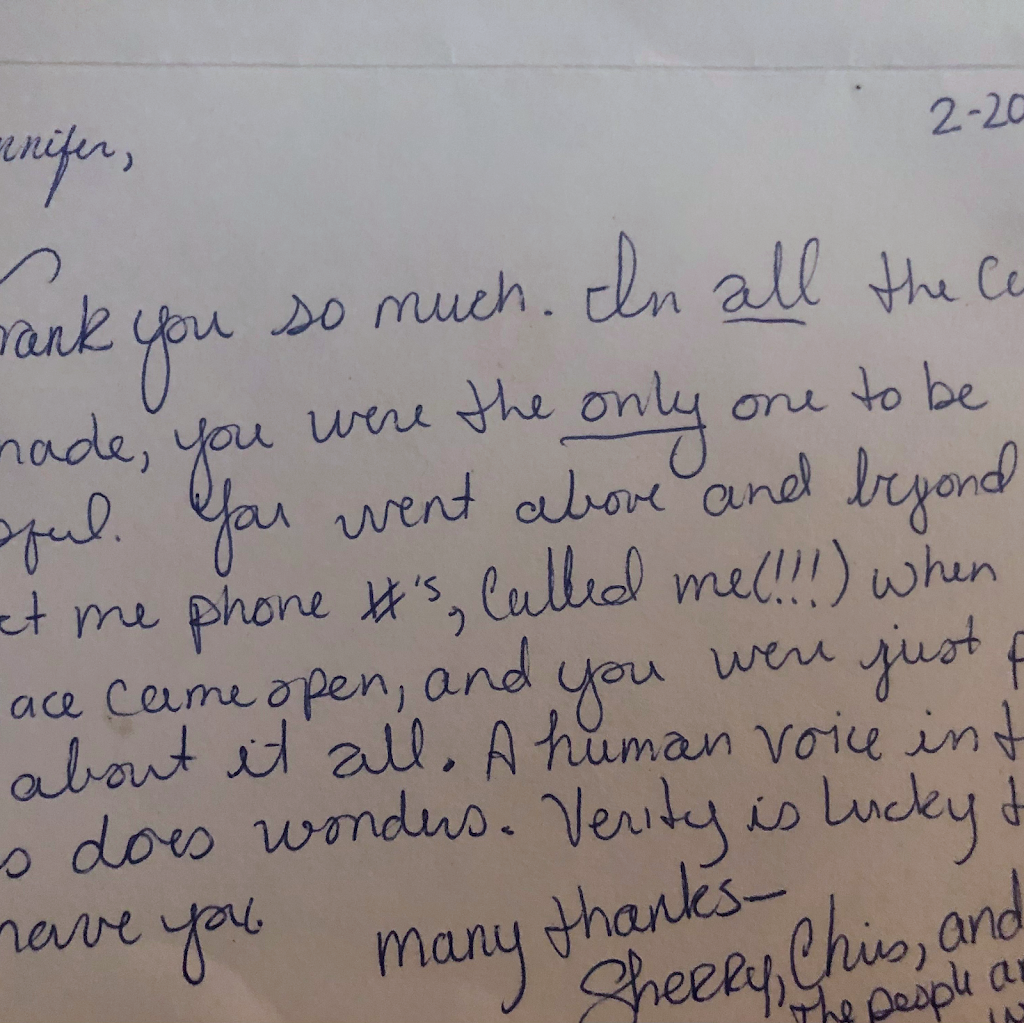 2-20
nnifer,
rank you so much. In all the Ca
made, you were the only one to be
pful. You went above and beyond
ct me phone #'s, called me(!!!) when
ace came open, and you were just p
about it all. A human voice in t
s does wonders. Verity is lucky t
have you.
many thanks—
Sherry, Chris, and
the people a